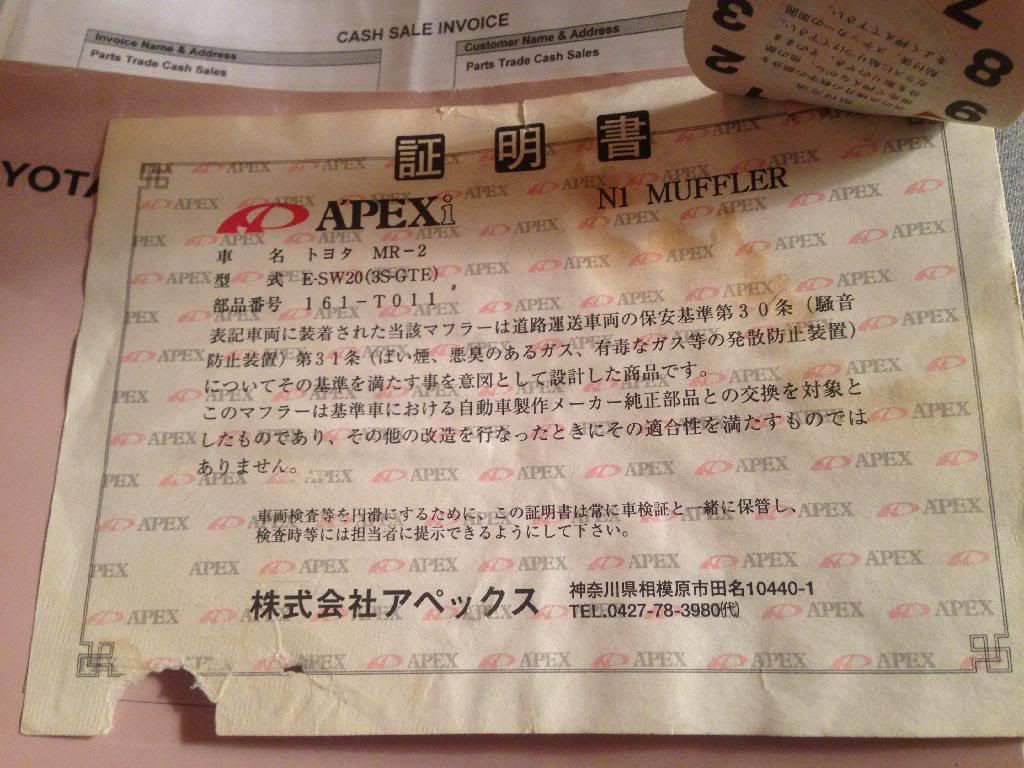 CASH SALE INVOICE
Invoice Name & Address
Customer Name & Address
Parts Trade Cash Sales
Parts Trade Cash Sales
1 2 3
7 8 9
YOTA
証明書
A'PEXi
N1 MUFFLER
車 名 トヨタ MR-2
型 式 E-SW20(3S-GTE)
部品番号 161-T011
表記車両に装着された当該マフラーは道路運送車両の保安基準第30条(騒音
防止装置)第31条(ばい煙、悪臭のあるガス、有毒なガス等の発散防止装置)
についてその基準を満たす事を意図として設計した商品です。
このマフラーは基準車における自動車製作メーカー純正部品との交換を対象と
したものであり、その他の改造を行なったときにその適合性を満たすものでは
ありません。
車両検査等を円滑にするために、この証明書は常に車検証と一緒に保管し、
検査時等には担当者に提示できるようにして下さい。
株式会社アペックス
神奈川県相模原市田名10440-1
TEL.0427-78-3980㈹